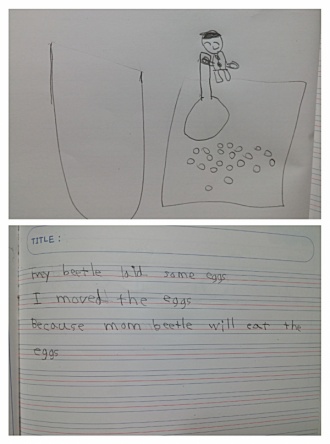 TITLE :
my beetle laid some eggs
I moved the eggs
Because mom beetle will eat the
eggs